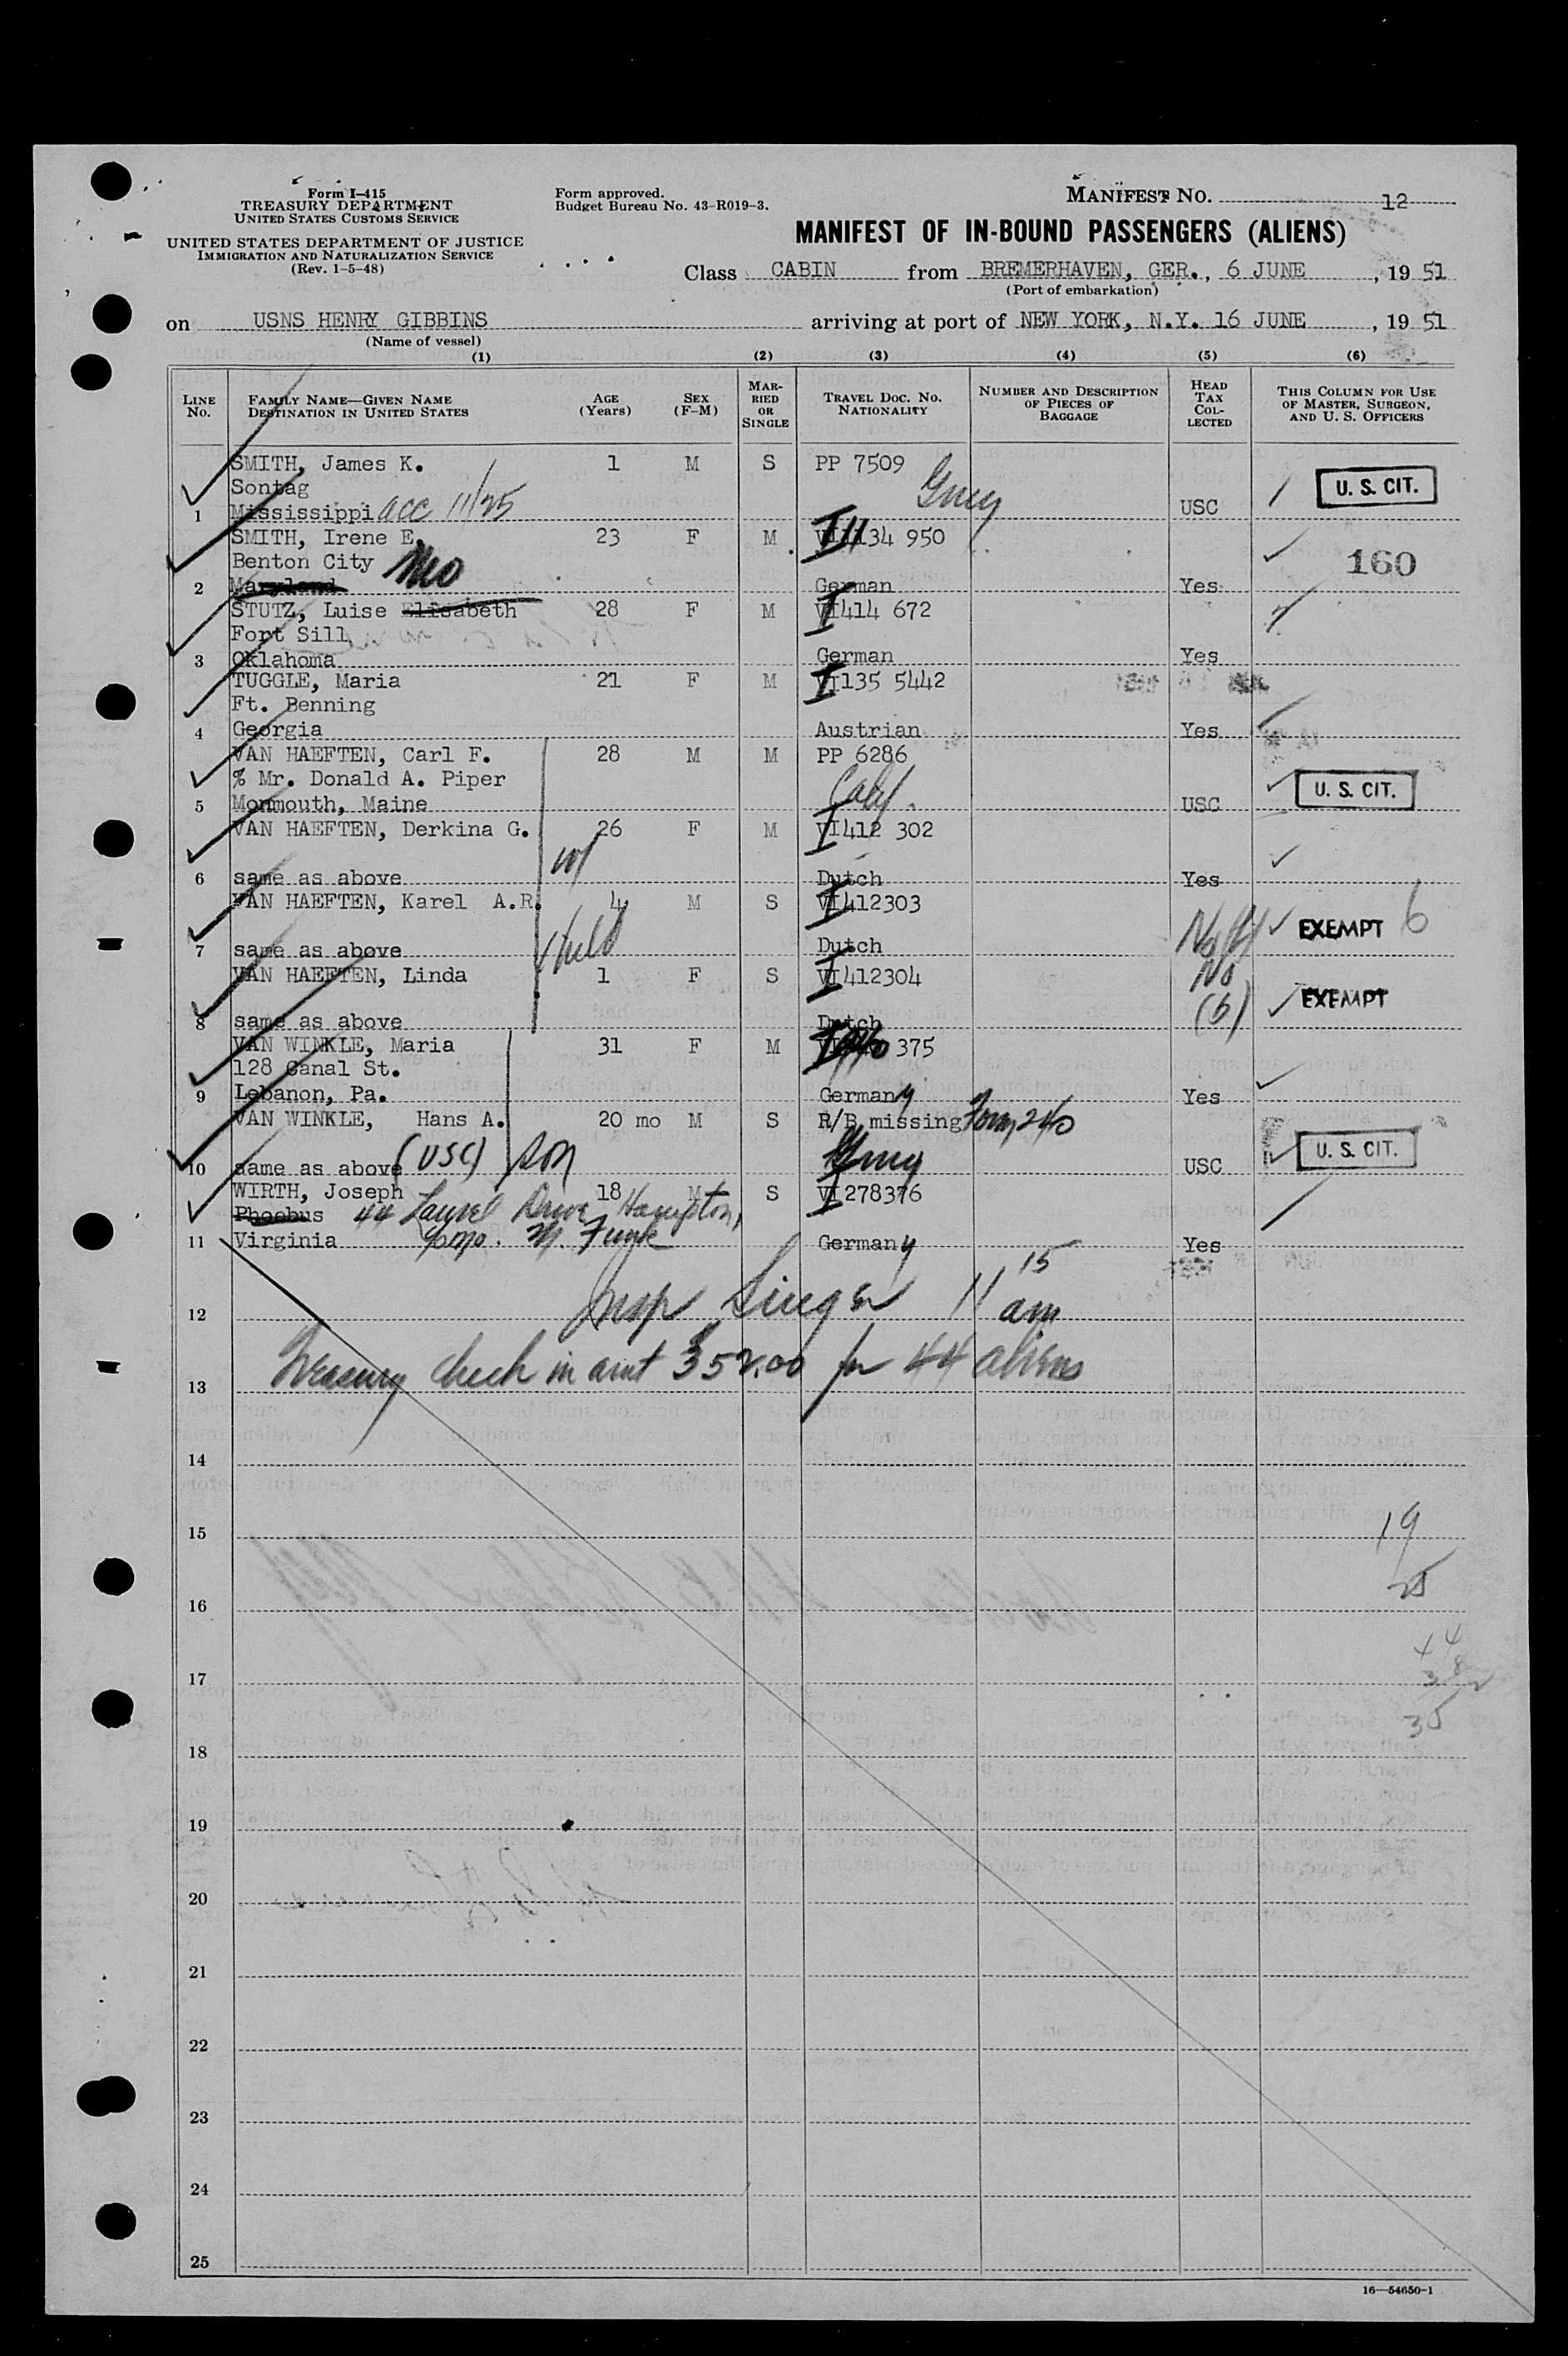 Form I-415
TREASURY DEPARTMENT
UNITED STATES CUSTOMS SERVICE
UNITED STATES DEPARTMENT OF JUSTICE
IMMIGRATION AND NATURALIZATION SERVICE
(Rev. 1-5-48)
Form approved.
Budget Bureau No. 43-R019-3.
MANIFEST NO. 12
MANIFEST OF IN-BOUND PASSENGERS (ALIENS)
Class CABIN from BREMERHAVEN, GER., 6 JUNE, 19 51
(Port of embarkation)
on USNS HENRY GIBBINS arriving at port of NEW YORK, N.Y. 16 JUNE, 19 51
(Name of vessel)
(1) (2) (3) (4) (5) (6)
LINE No. FAMILY NAME—GIVEN NAME DESTINATION IN UNITED STATES AGE (Years) SEX (F-M) MARRIED OR SINGLE TRAVEL DOC. NO. NATIONALITY NUMBER AND DESCRIPTION OF PIECES OF BAGGAGE HEAD TAX COLLECTED THIS COLUMN FOR USE OF MASTER, SURGEON, AND U. S. OFFICERS
SMITH, James K. 1 M S PP 7509
Sontag Gmey U. S. CIT.
1 Mississippi acc 11/25 USC
SMITH, Irene E. 23 F M 34 950
Benton City Mo 160
2 Maryland German Yes
STUTZ, Luise Elisabeth 28 F M VI414 672
Fort Sill
3 Oklahoma German Yes
TUGGLE, Maria 21 F M VI135 5442
Ft. Benning
4 Georgia Austrian Yes
VAN HAEFTEN, Carl F. 28 M M PP 6286
% Mr. Donald A. Piper U. S. CIT.
5 Monmouth, Maine USC
VAN HAEFTEN, Derkina G. 26 F M VI412 302
6 same as above Dutch Yes
VAN HAEFTEN, Karel A.R. 4 M S VI412303
EXEMPT 6
7 same as above Dutch
VAN HAEFTEN, Linda 1 F S VI412304 No
(6) EXEMPT
8 same as above Dutch
VAN WINKLE, Maria 31 F M 375
128 Canal St.
9 Lebanon, Pa. Germany Yes
VAN WINKLE, Hans A. 20 mo M S R/B missing Form 240
10 same as above (USC) son Gmey USC U. S. CIT.
WIRTH, Joseph 18 M S VI278376
Phoebus 44 Laurel Drive Hampton,
11 Virginia M. Funk Germany Yes
12 Insp Singer 11 15 am
13 Treasury check in amt 352.00 for 44 aliens
14
15 19
16 25
17 44
18 35
19
20
21
22
23
24
25
16—54650-1